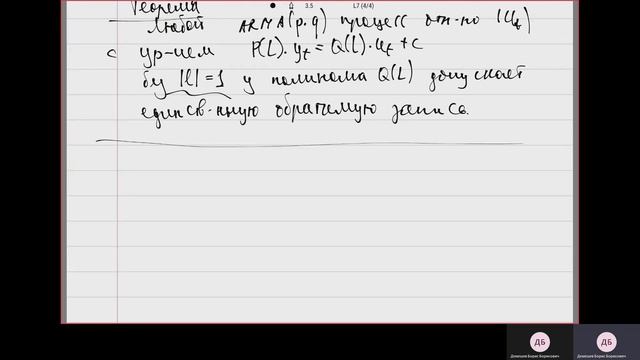 3.5 L7 (4/4)
Теорема
Любой ARMA(p.q) процесс отн-но (u_t)
с ур-ием P(L)·y_t = Q(L)·u_t + c
без |l|=1 у полинома Q(L) допускает
единств-нную обратимую запись.
ДБ
Демешев Борис Борисович
ДБ
Демешев Борис Борисович